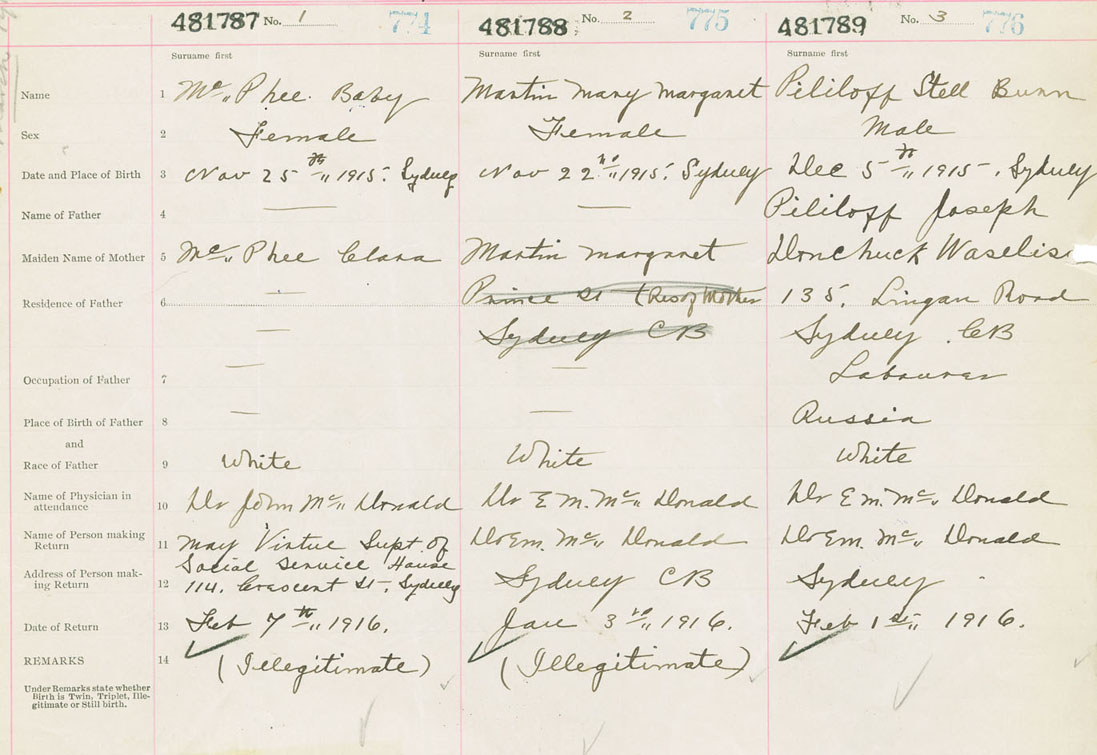 481787 No. 1 774 481788 No. 2 775 481789 No. 3 776
Surname first Surname first Surname first
Name 1 Mc Phee Baby Martin Mary Margaret Pililoff Stell Bunn
Sex 2 Female Female Male
Date and Place of Birth 3 Nov 25th 1915. Sydney Nov 22nd 1915. Sydney Dec 5th 1915, Sydney
Name of Father 4 — — Pililoff Joseph
Maiden Name of Mother 5 Mc Phee Clara Martin Margaret Donchuck
Residence of Father 6 — Prince St (Res of Mother 135, Lingan Road
— Sydney CB Sydney CB
Occupation of Father 7 — — Labourer
Place of Birth of Father 8 — — Russia
and
Race of Father 9 White White White
Name of Physician in
attendance 10 Dr John Mc Donald Dr E M. Mc Donald Dr E M. Mc Donald
Name of Person making
Return 11 May Virtue Supt. of Dr E M. Mc Donald Dr E M. Mc Donald
Social Service House
Address of Person mak-
ing Return 12 114, Crescent St, Sydney Sydney CB Sydney
Date of Return 13 Feb 7th 1916. Jan 3rd 1916. Feb 1st 1916.
REMARKS 14 (Illegitimate) (Illegitimate)
Under Remarks state whether
Birth is Twin, Triplet, Ille-
gitimate or Still birth.